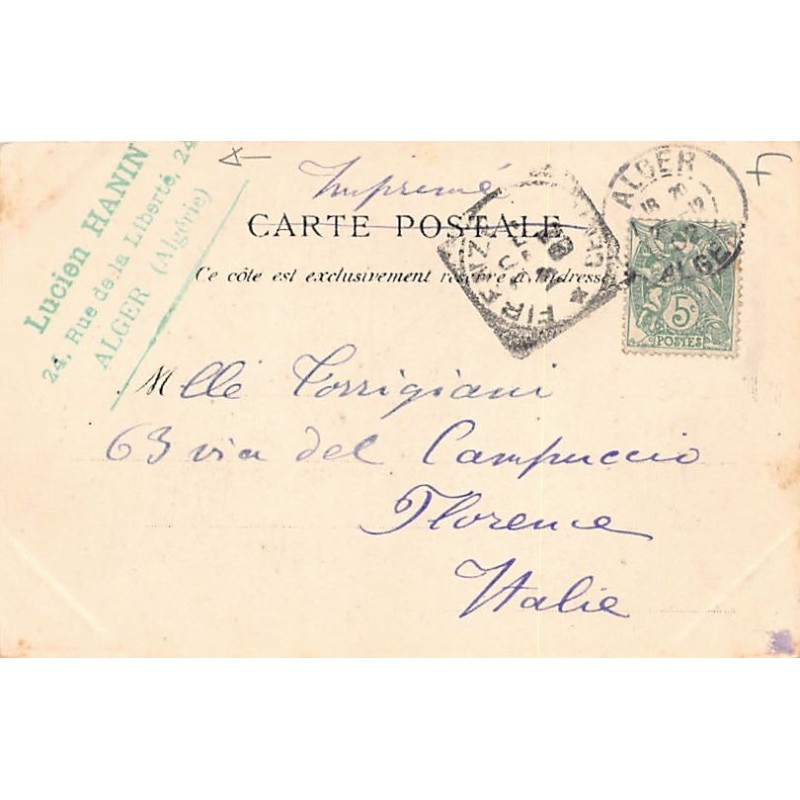 Lucien HANIN
24, Rue de la Liberté, 24
ALGER (Algérie)
Imprimé
CARTE POSTALE
Ce côté est exclusivement réservé à l'adresse
FIRENZE
ALGER
ALGER
5c
POSTES
Mlle Torrigiani
63 via del Campuccio
Florence
Italie